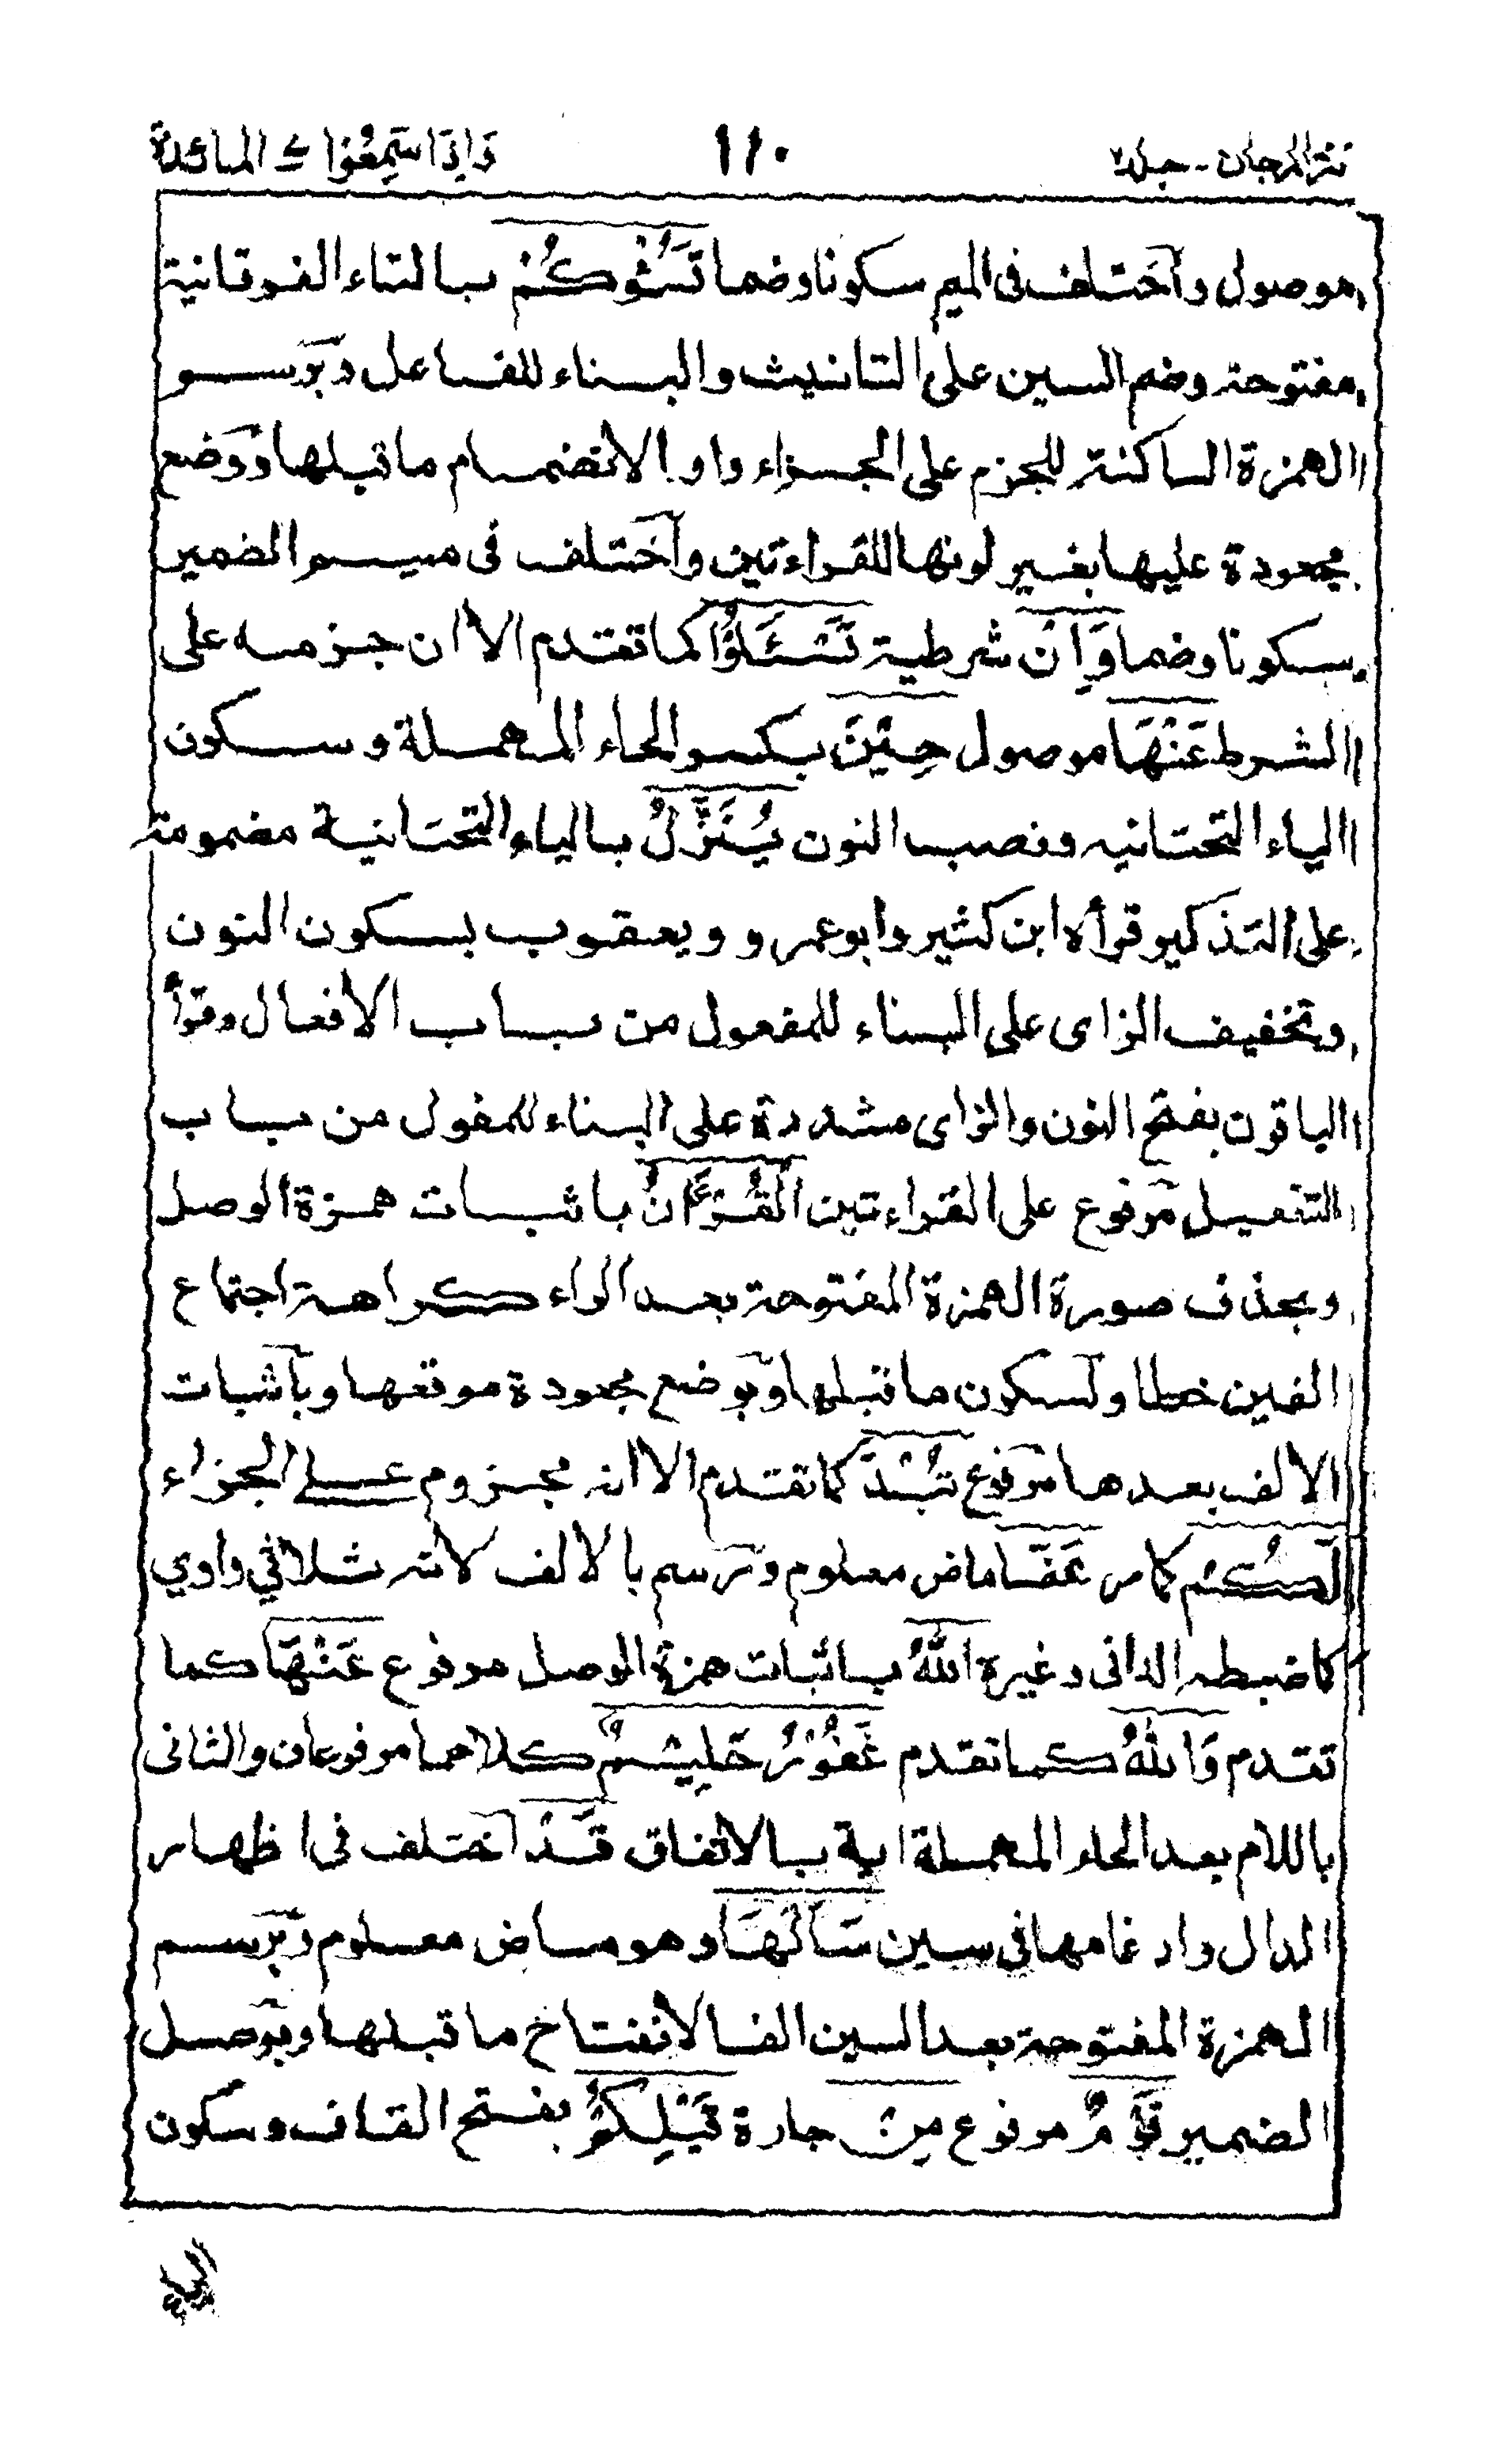 نثر المرجان - جلد ٢ ١١٠ وَاِذَا سَمِعُوْا ٧ المائدة
موصول واختلف فى الميم سكونا وضما تَسُؤْكُمْ بالتاء الفوقانية
مفتوحة وضم السين على التانيث والبناء للفاعل وبرسم
الهمزة الساكنة للجزم على الجزاء واوا لانضمام ما قبلها ووضع
مجعودة عليها بغير لونها للقراءتين واختلف فى ميم الضمير
سكونا وضما وَاِنْ شرطية تَسْـَٔلُوْا كما تقدم الا ان جزمه على
الشرط عَنْهَا موصول حِيْنَ بكسر الحاء المهملة وسكون
الياء التحتانيه ونصب النون يُنَزَّلُ بالياء التحتانية مضمومة
على التذكير قرأه ابن كثير وابو عمرو ويعقوب بسكون النون
وتخفيف الزاى على البناء للمفعول من باب الافعال وقرأ
الباقون بفتح النون والزاى مشددة على البناء للمفول من باب
التفعيل مرفوع على القراءتين الْقُرْءَانُ باثبات همزة الوصل
وبحذف صورة الهمزة المفتوحة بعد الراء كراهة اجتماع
الفين خطا ولسكون ما قبلها وبوضع مجعودة موقعها وباثبات
الالف بعدها مرفوع تُبْدَ كما تقدم الا انه مجزوم على الجزاء
لَكُمْ كما مر عَفَا ماض معلوم ورسم بالالف لانه ثلاثي واوي
كما ضبطه الدانى وغيره اللّٰهُ باثبات همزة الوصل مرفوع عَنْهَا كما
تقدم وَاللّٰهُ كما تقدم غَفُوْرٌ حَلِيْمٌ كلاهما مرفوعان والثانى
باللام بعد الحاء المهملة اية بالاتفاق قَدْ اختلف فى اظهار
الدال وادغامها فى سين سَاَلَهَا وهو ماض معلوم وبرسم
الهمزة المفتوحة بعد السين الفا لانفتاح ما قبلها وبوصل
الضمير قَوْمٌ مرفوع مِنْ جارة قَبْلِكُمْ بفتح القاف وسكون